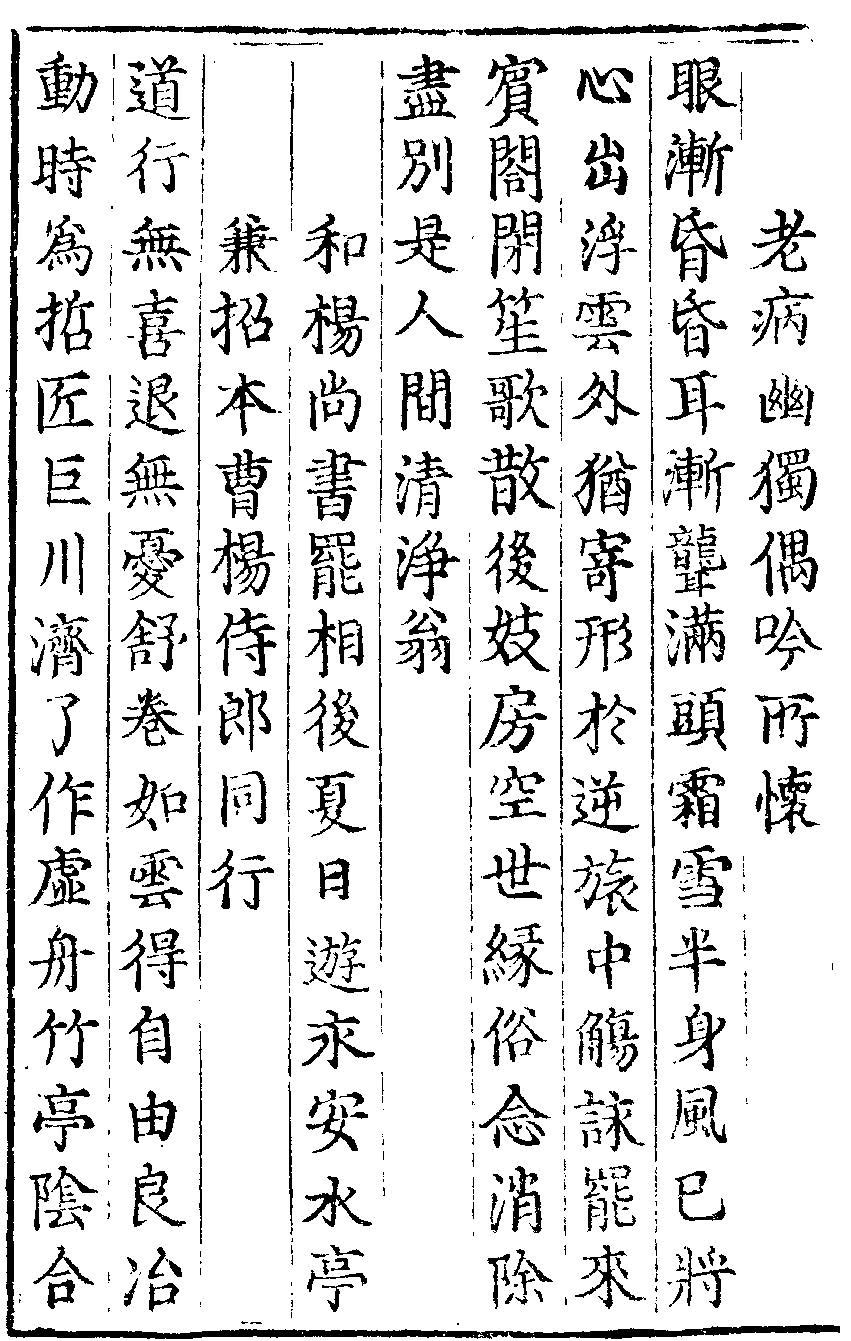 老病幽獨偶吟所懷
眼漸昏昏耳漸聾滿頭霜雪半身風已將
心出浮雲外猶寄形於逆旅中觴詠罷來
賓閤閉笙歌散後妓房空世緣俗念消除
盡別是人間清淨翁
和楊尚書罷相後夏日遊永安水亭
兼招本曹楊侍郎同行
道行無喜退無憂舒卷如雲得自由良冶
動時爲哲匠巨川濟了作虛舟竹亭陰合